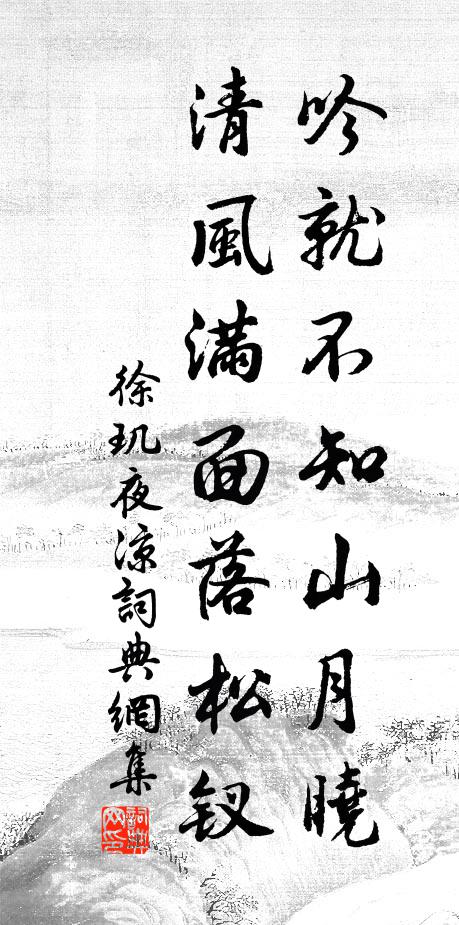 吟就不知山月曉
清風滿面落松釵
徐玑夜涼詞典網集